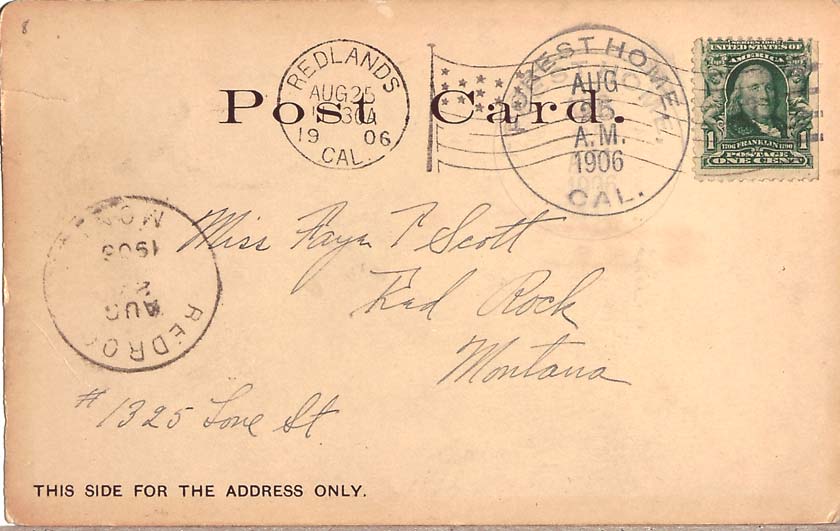 8
REDLANDS
AUG 25
30A
19 06
CAL.
Post Card.
FOREST HOME,
AUG
25
A.M.
1906
CAL.
UNITED STATES OF
AMERICA
1 1706 FRANKLIN 1790 1
POSTAGE
ONE CENT
MONT
1906
AUG
REDROC
Miss Faye P Scott
Red Rock
Montana
# 1325 Lone St
THIS SIDE FOR THE ADDRESS ONLY.